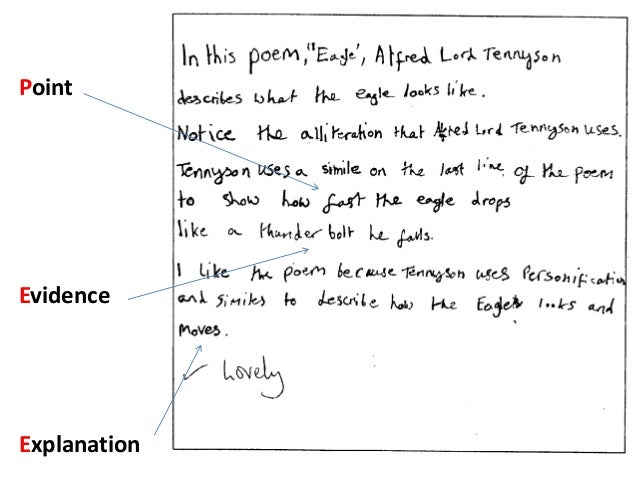 Point
Evidence
Explanation
In this poem, "Eagle', Alfred Lord Tennyson
describes what the eagle looks like.
Notice the alliteration that Alfred Lord Tennyson uses.
Tennyson uses a simile on the last line of the poem
to show how fast the eagle drops
like a thunder bolt he falls.
I like the poem because Tennyson uses Personification
and similes to describe how the Eagle looks and
moves.
✓ Lovely